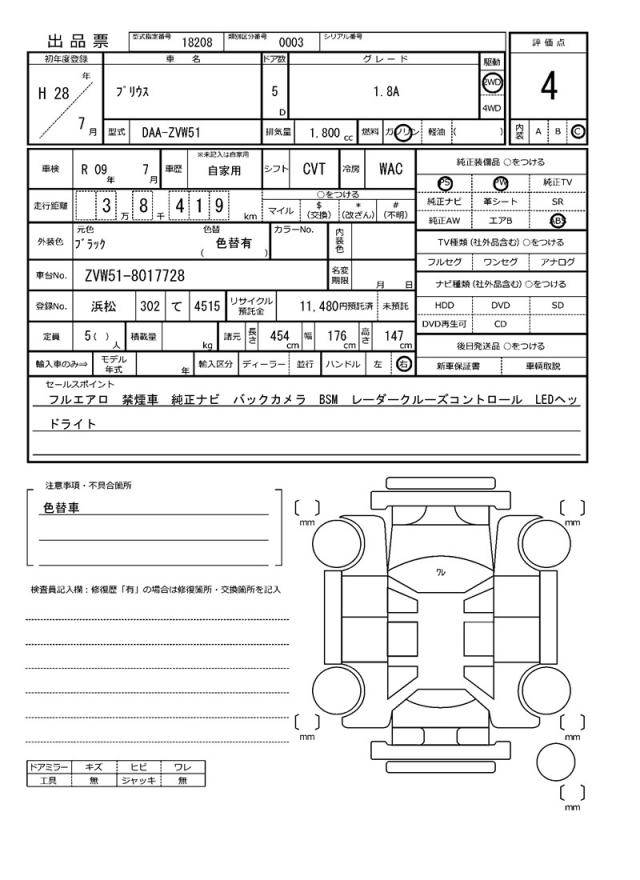 出品票 型式指定番号 18208 類別区分番号 0003 シリアル番号
評価点
初年度登録 車名 ドア数 グレード 駆動
H 28 年 7 月 プリウス 5 D 1.8A 2WD 4WD
4
型式 DAA-ZVW51 排気量 1.800 cc 燃料 ガソリン 軽油 ( )
内装 A B C
車検 R 09 年 7 月 車歴 ※未記入は自家用 自家用 シフト CVT 冷房 WAC
純正装備品 ○をつける
PS PW 純正TV
走行距離 3 万 8 千 4 1 9 km
○をつける
マイル $ (交換) * (改ざん) # (不明)
純正ナビ 革シート SR
純正AW エアB ABS
外装色 元色 ブラック 色替 色替有 ( ) カラーNo. 内装色
TV種類 (社外品含む) ○をつける
フルセグ ワンセグ アナログ
車台No. ZVW51-8017728 名変期限 月 日
ナビ種類 (社外品含む) ○をつける
登録No. 浜松 302 て 4515 リサイクル預託金 11,480円預託済 未預託
HDD DVD SD
DVD再生可 CD
定員 5 ( ) 人 積載量 kg 諸元 長さ 454 cm 幅 176 cm 高さ 147 cm
後日発送品 ○をつける
輸入車のみ⇒ モデル年式 年 輸入区分 ディーラー 並行 ハンドル 左 右
新車保証書 車輌取説
セールスポイント
フルエアロ 禁煙車 純正ナビ バックカメラ BSM レーダークルーズコントロール LEDヘッ
ドライト
注意事項・不具合箇所
色替車
検査員記入欄：修復歴「有」の場合は修復箇所・交換箇所を記入
ドアミラー キズ ヒビ ワレ
工具 無 ジャッキ 無
mm
mm
ワレ
mm
mm
mm